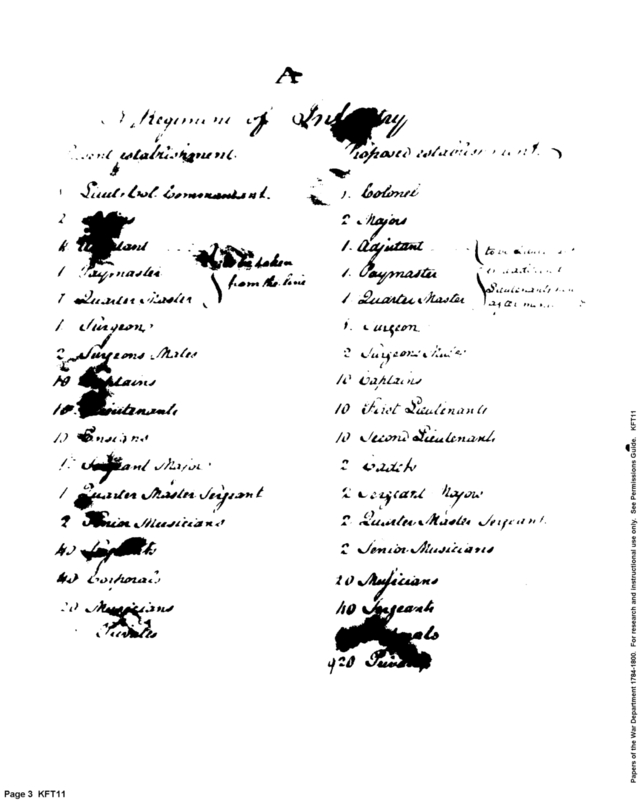 A
A Regiment of
establishment.
Proposed establishment.
1 Lieut. Col. Commandant.
2
1
1 Paymaster
1 Quarter Master
to be taken
from the line
1 Surgeon
2 Surgeons Mates
10 Captains
10 Lieutenants
10 Ensigns
1 Sergeant Major
1 Quarter Master Sergeant
2 Senior Musicians
40
40 Corporals
20 Musicians
Privates
1. Colonel
2 Majors
1. Adjutant
1. Paymaster
1 Quarter Master
Lieutenants
1. Surgeon
2 Surgeons Mates
10 Captains
10 First Lieutenants
10 Second Lieutenants
2 Cadets
2 Sergeant Majors
2. Quarter Master Sergeant.
2 Senior Musicians
20 Musicians
40 Sergeants
920
Page 3 KFT11
Papers of the War Department 1784-1800. For research and instructional use only. See Permissions Guide. KFT11